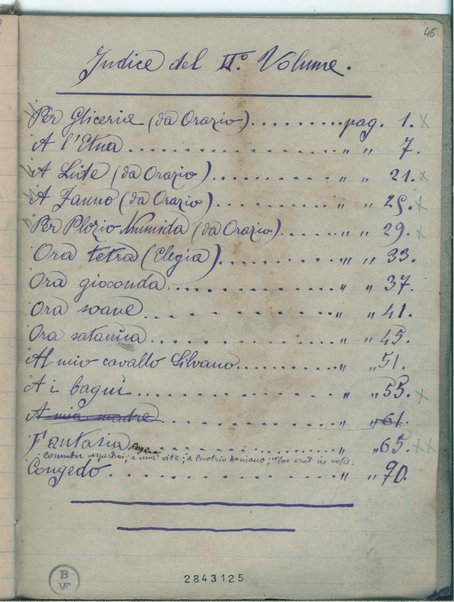 46
Indice del IIº Volume.
Per Gliceria (da Orazio)......... pag. 1. x
A l'Etna......................... " " 7.
A Lide (da Orazio)............... " " 21. x
A Fauno (da Orazio).............. " " 25. x
Per Plozio Numida (da Orazio).... " " 29. x
Ora tetra (Elegia)............... " " 33.
Ora gioconda..................... " " 37.
Ora soave........................ " " 41.
Ora satanica..................... " " 45.
Al mio cavallo Silvano........... " " 51.
A i bagni........................ " " 55. x
A mia madre...................... " " 61.
Fantasia......................... " " 65. xx
a una vite; a
Congedo.......................... " " 90.
B
2843125